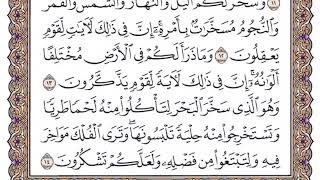 ١١ وَسَخَّرَ لَكُمُ ٱلَّيْلَ وَٱلنَّهَارَ وَٱلشَّمْسَ وَٱلْقَمَرَ
وَٱلنُّجُومُ مُسَخَّرَٰتٌۢ بِأَمْرِهِۦٓ إِنَّ فِى ذَٰلِكَ لَءَايَٰتٍ لِّقَوْمٍ
يَعْقِلُونَ ١٢ وَمَا ذَرَأَ لَكُمْ فِى ٱلْأَرْضِ مُخْتَلِفًا
أَلْوَٰنُهُۥٓ إِنَّ فِى ذَٰلِكَ لَءَايَةً لِّقَوْمٍ يَذَّكَّرُونَ ١٣
وَهُوَ ٱلَّذِى سَخَّرَ ٱلْبَحْرَ لِتَأْكُلُوا۟ مِنْهُ لَحْمًا طَرِيًّا
وَتَسْتَخْرِجُوا۟ مِنْهُ حِلْيَةً تَلْبَسُونَهَا وَتَرَى ٱلْفُلْكَ مَوَاخِرَ
فِيهِ وَلِتَبْتَغُوا۟ مِن فَضْلِهِۦ وَلَعَلَّكُمْ تَشْكُرُونَ ١٤